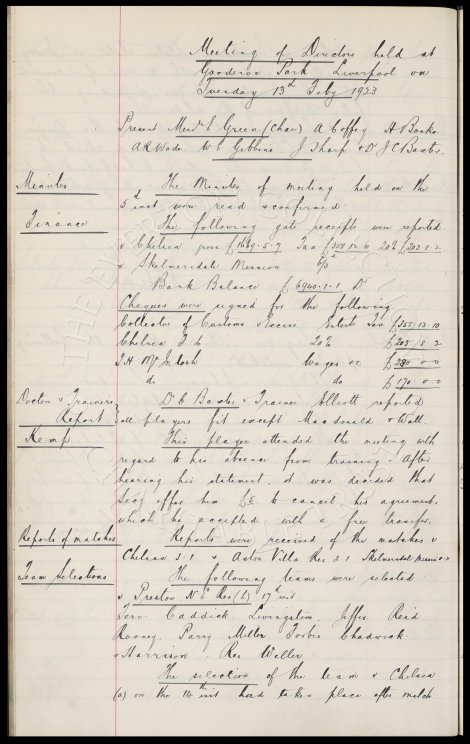 Meeting of Directors held at
Goodison Park Liverpool on
Tuesday 13th Feby 1923
Present Messrs E Green (Chair) A Coffey A Banks
A R Wade. W C Gibbins J Sharp & Dr J C Baxter.
Minutes
The Minutes of meeting held on the
5th inst were read & confirmed
Finance
The following gate receipts were reported
v Chelsea gross £1669.5.7 Tax £355.13.0 20% £203.8.2
v Skelmersdale Mission
Bank Balance £6940.1.1 Dr
Cheques were signed for the following
Collector of Customs & Excise Enterts Tax £355.13.10
Chelsea F C 20% £203.8.2
J H McIntosh Wages &c £280.0.0
do do £170.0.0
Doctors & Trainers Report
Dr C Baxter & Trainer Elliott reported
all players fit except Macdonald & Wall.
Kemp
This player attended the meeting with
regard to his absence from training. After
hearing his statement, it was decided that
Secy offer him £5 to cancel his agreement,
which he accepted, with a free transfer.
Reports of matches
Reports were received of the matches v
Chelsea 3.1 & Aston Villa Res 2.1 Skelmersdale Mission
Team Selections
The following teams were selected
v Preston N.E. Res (L) 17th inst
Fern Caddick Livingston, Jeffs Reid
Rooney. Parry Miller Forbes Chadwick
& Harrison. Res Weller
The selection of the team v Chelsea
(a) on the 14th inst had taken place after match